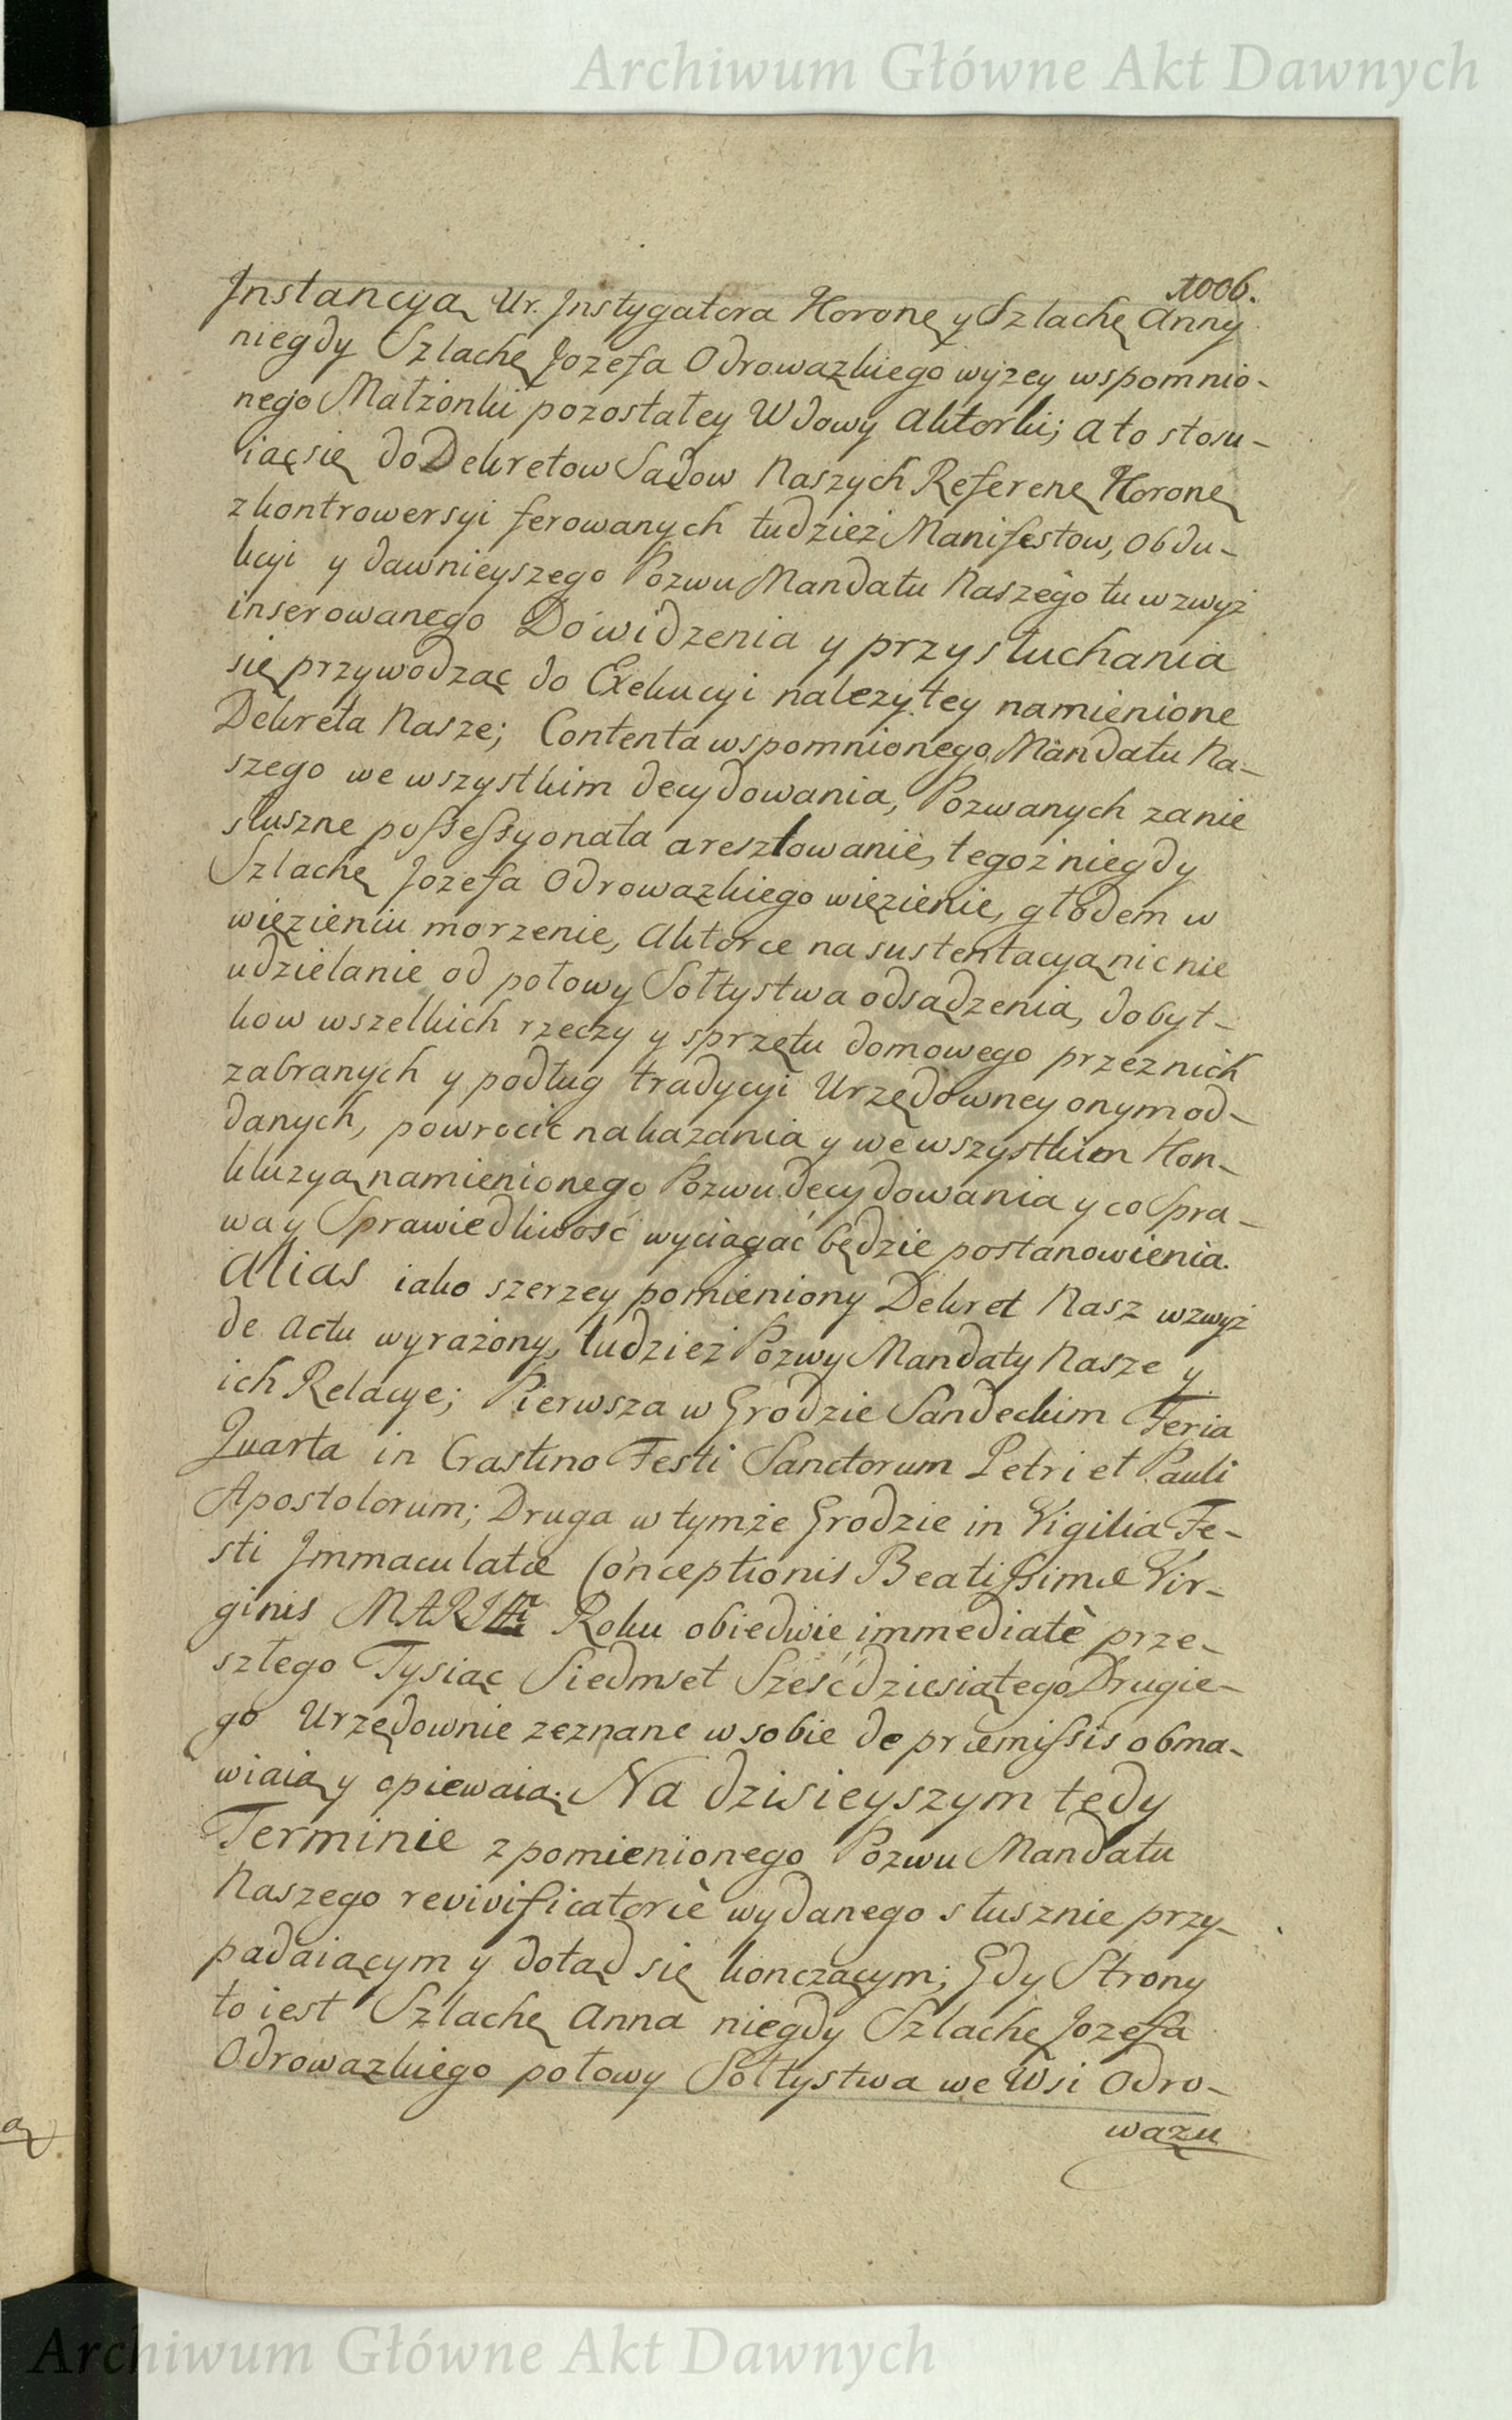 Archiwum Główne Akt Dawnych
1006.
Instancyą Ur. Instygatora Koronę y Szlachę Anny
niegdy Szlachę Jozefa Odrowązkiego wyżey wspomnio-
nego Małżonki pozostałey Wdowy Aktorki; a to stosu-
iąc się do Dekretow Sądow Naszych Referenę Koronę
z kontrowersyi ferowanych tudzież Manifestow, Obdu-
kcyi y dawnieyszego Pozwu Mandatu Naszego tu wzwyż
inserowanego Do widzenia y przysłuchania
się przywodząc do Exekucyi należytey namienione
Dekreta Nasze; Contenta wspomnionego Mandatu Na-
szego we wszystkim decydowania, Pozwanych za nie
słuszne possessyonata aresztowanie, tegoż niegdy
Szlachę Jozefa Odrowązkiego więzienie, głodem w
więzieniu morzenie, Aktorce na sustentacyą nic nie
udzielanie od połowy Sołtystwa odsądzenia, dobyt-
kow wszelkich rzeczy y sprzętu domowego przez nich
zabranych y podług tradycyi Urzędowney onym od-
danych, powrocić nakazania y we wszystkim Kon-
kluzyą namienionego Pozwu decydowania y co Spra-
wa y Sprawiedliwość wyciągać będzie postanowienia.
Alias iako szerzey pomieniony Dekret Nasz wzwyż
de Actu wyrażony, tudzież Pozwy Mandaty Nasze y
ich Relacye; Pierwsza w Grodzie Sandeckim Feria
Quarta in Crastino Festi Sanctorum Petri et Pauli
Apostolorum; Druga w tymże Grodzie in Vigilia Fe-
sti Immaculatæ Conceptionis Beatissimæ Vir-
ginis MARIÆ Roku obiedwie immediatè prze-
szłego Tysiąc Siedmset Sześćdziesiątego Drugie-
go Urzędownie zeznane w sobie de præmissis obma-
wiaią y opiewaią. Na dzisieyszym tedy
Terminie z pomienionego Pozwu Mandatu
Naszego revivificatoriè wydanego słusznie przy-
padaiącym y dotąd się konczącym; Gdy Strony
to iest Szlachę Anna niegdy Szlachę Jozefa
Odrowązkiego połowy Sołtystwa we Wsi Odro-
wązu
Archiwum Główne Akt Dawnych